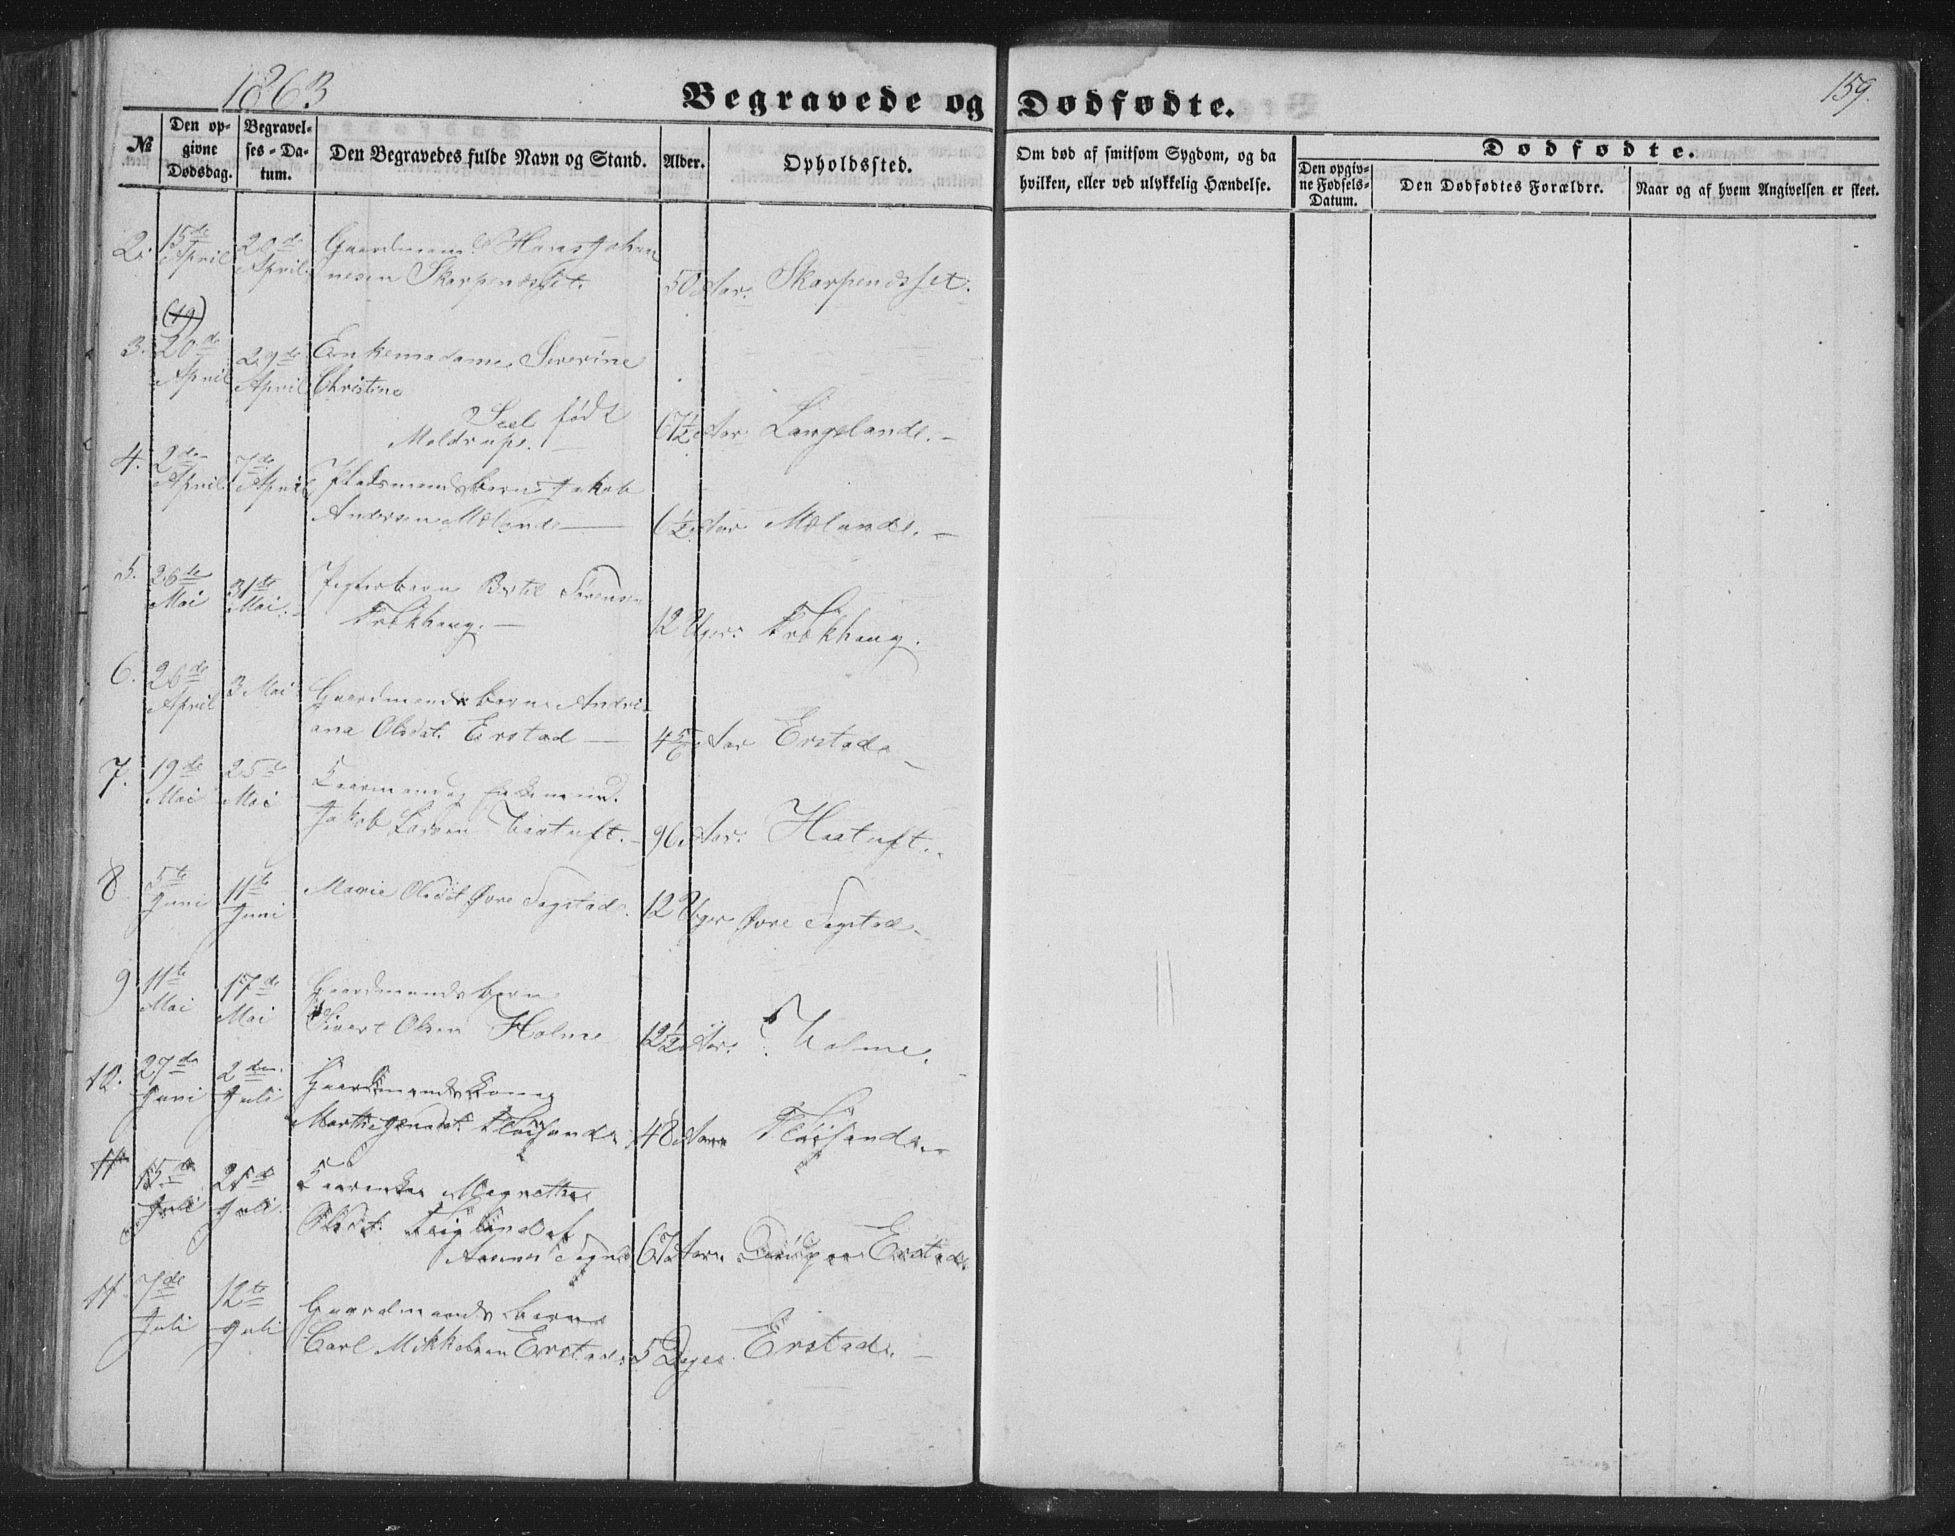 1863
Begravede og Dødfødte.
159.
№
Den opgivne Dødsdag.
Begravelses-Datum.
Den Begravedes fulde Navn og Stand.
Alder.
Opholdssted.
Om død af smitsom Sygdom, og da hvilken, eller ved ulykkelig Hændelse.
Dødfødte.
Den opgivne Fødsels-Datum.
Den Dødfødtes Forældre.
Naar og af hvem Angivelsen er skeet.
2. 15de April 20de April Gaardmand Hans Johan
nesen Skarpendsset. 50 Aar. Skarpendsset.
(19)
3. 20de April 29de April Enkemadame Severine
Christine
Seel født
Moldrups. 67½ Aar Langeland. -
4. 2den April 7de April Pladsmandsbarn Jakob
Andersen Mæland - 6½ Aar Mæland. -
5. 26de Mai 31te Mai. Bertil Sørensen
12 Uger.
6. 26de April 3 Mai Gaardmandsbarn Andri-
ana Olsdt. Erstad - 4 5/6 Aar Erstad -
7. 19de Mai 25de Mai Kaarmand
Jakob Larsen Haatuft. - 96 Aar. Haatuft.
8 5te Juni 11te Juni Marie Olsdt Øvre Sagstad. 12 Uger Øvre Sagstad -
9 11te Mai 17de Mai Gaardmandsbarn
Sivert Olsen Holme 12½ Aar. Holme.
10. 27de Juni 2den Juli Gaardmandskone
Marthe 48 Aar
11 15de Juli 21de Juli Magnethe
Olsdt. 67 Aar Erstad
11 7de Juli 12te Juli Gaardmands barn
Carl Mikkelsen Erstad. 5 Dage. Erstad. -